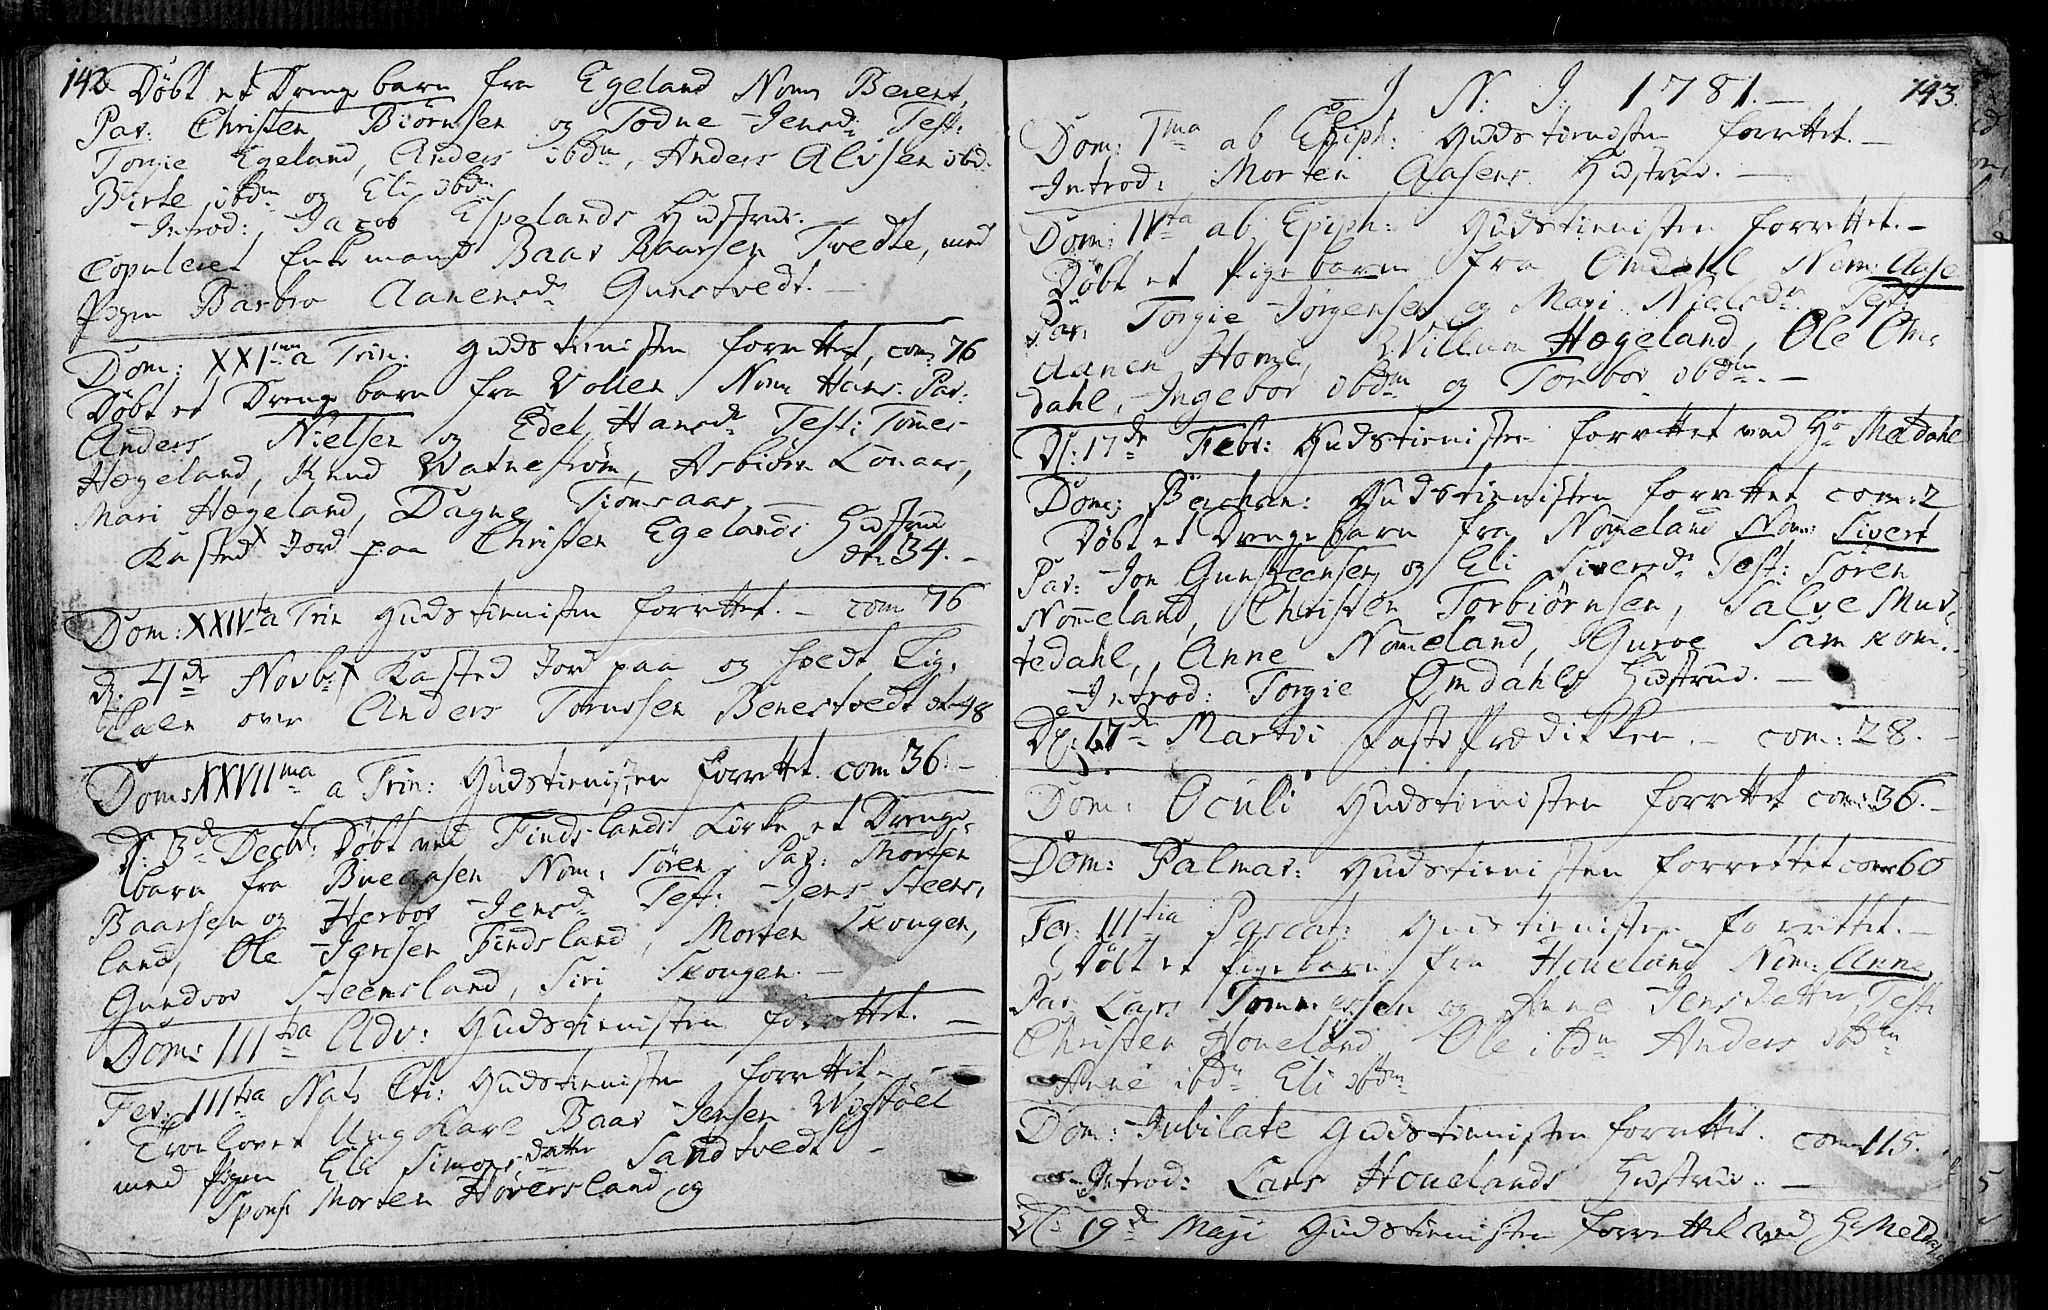 142
Døbt et Drengebarn fra Egeland Nom Berent,
Par: Christen Biørnsen og Todne Jensd: Test:
Torgie Egeland, Anders ibdm, Anders Alvsen ibd:
Birte ibdm og Eli ibdm
Introd: Jacob Espelands Hustrue.
Copuleret Enkemand Baar Baarsen Tvedte, med
Pigen Barbro Aanensdr Gunstvedt. —
Dom: XXIma a Trin: Gudstienisten forrettet, com: 76
Døbt et Drengebarn fra Vollen Nom Hans. Par:
Anders Nielsen og Edel Hansdr Test: Tømes
Hægeland, Knud Vatnestrøm, Asbiørn Lonaas,
Mari Hægeland, Dagne Tiomsaas. —
Kasted Jord paa Christen Egelands Hustrue
æt: 34. —
Dom: XXIVta a Trin Gudstienisten forrettet. — com 76
d: 4de Novbr Kasted Jord paa og holdt Lig-
talen over Anders Tornssen Benestvedt æt 48
Dom: XXVIIma a Trin: Gudstienisten forrettet. com 36. —
D: 3de Decbr: Døbt ved Findslands Kirke et Drenge-
barn fra Bueaasen Nom: Søren, Par: Morten
Baarsen og Herbor Jensdr Test: Jens Steens-
land, Ole Jensen Findsland, Morten Skougen,
Gundvor Steensland, Siri Skougen. —
Dom: IIItia Adv: Gudstienisten forrettet. —
Fer: IIItia Nat: Cti: Gudstienisten forrettet —
Troelovet Ungkarl Baar Jensen Vigstøel
med Pigen Eli Simonsdatter Sandtvedt —
Spons: Morten Høversland og
143.
J. N. J. 1781. —
Dom: Ima ab Epiph: Gudstienisten forrettet. —
Introd: Morten Aasens Hustrue. —
Dom: IVta ab Epiph: Gudstienisten forrettet. —
Døbt et Pigebarn fra Omdahl Nom: Aase
Par: Torgie Jørgensen og Mari Nielsdr Test:
Aanen Home, Villum Hægeland, Ole Om-
dahl, Ingebor ibdm og Tonbor ibdm. —
D: 17de Febr: Gudstienisten forrettet ved Hr Meldahl
Dom: Gudstienisten forrettet com: 2
Døbt et Drengebarn fra Nomeland Nom: Sivert
Par: Jon Gunsteensen og Eli Siversdr Test: Søren
Nomeland, Christen Torbiørnsen, Salve Mus-
tedahl, Anne Nomeland, Guroe Samkom.
Introd: Torgie Omdahls Hustrue. —
D: 17de Martii Faste Prædikken. — com: 28. —
Dom: Oculi Gudstienisten forrettet com: 36. —
Dom: Palmar: Gudstienisten forrettet com 60
Fer: IIItia Pascat: Gudstienisten forrettet. —
Døbt et Pigebarn fra Houeland Nom: Anne,
Par: Lars Tommessen og Anne Jensdatter, Test:
Christen Houeland Ole ibdm Anders ibdm
Anne ibdm Eli ibdm
Dom: Jubilate Gudstienisten forrettet. com 115.
Introd: Lars Houelands Hustrue. —
D: 19de Maji Gudstienisten forrettet ved Hr Meldahl